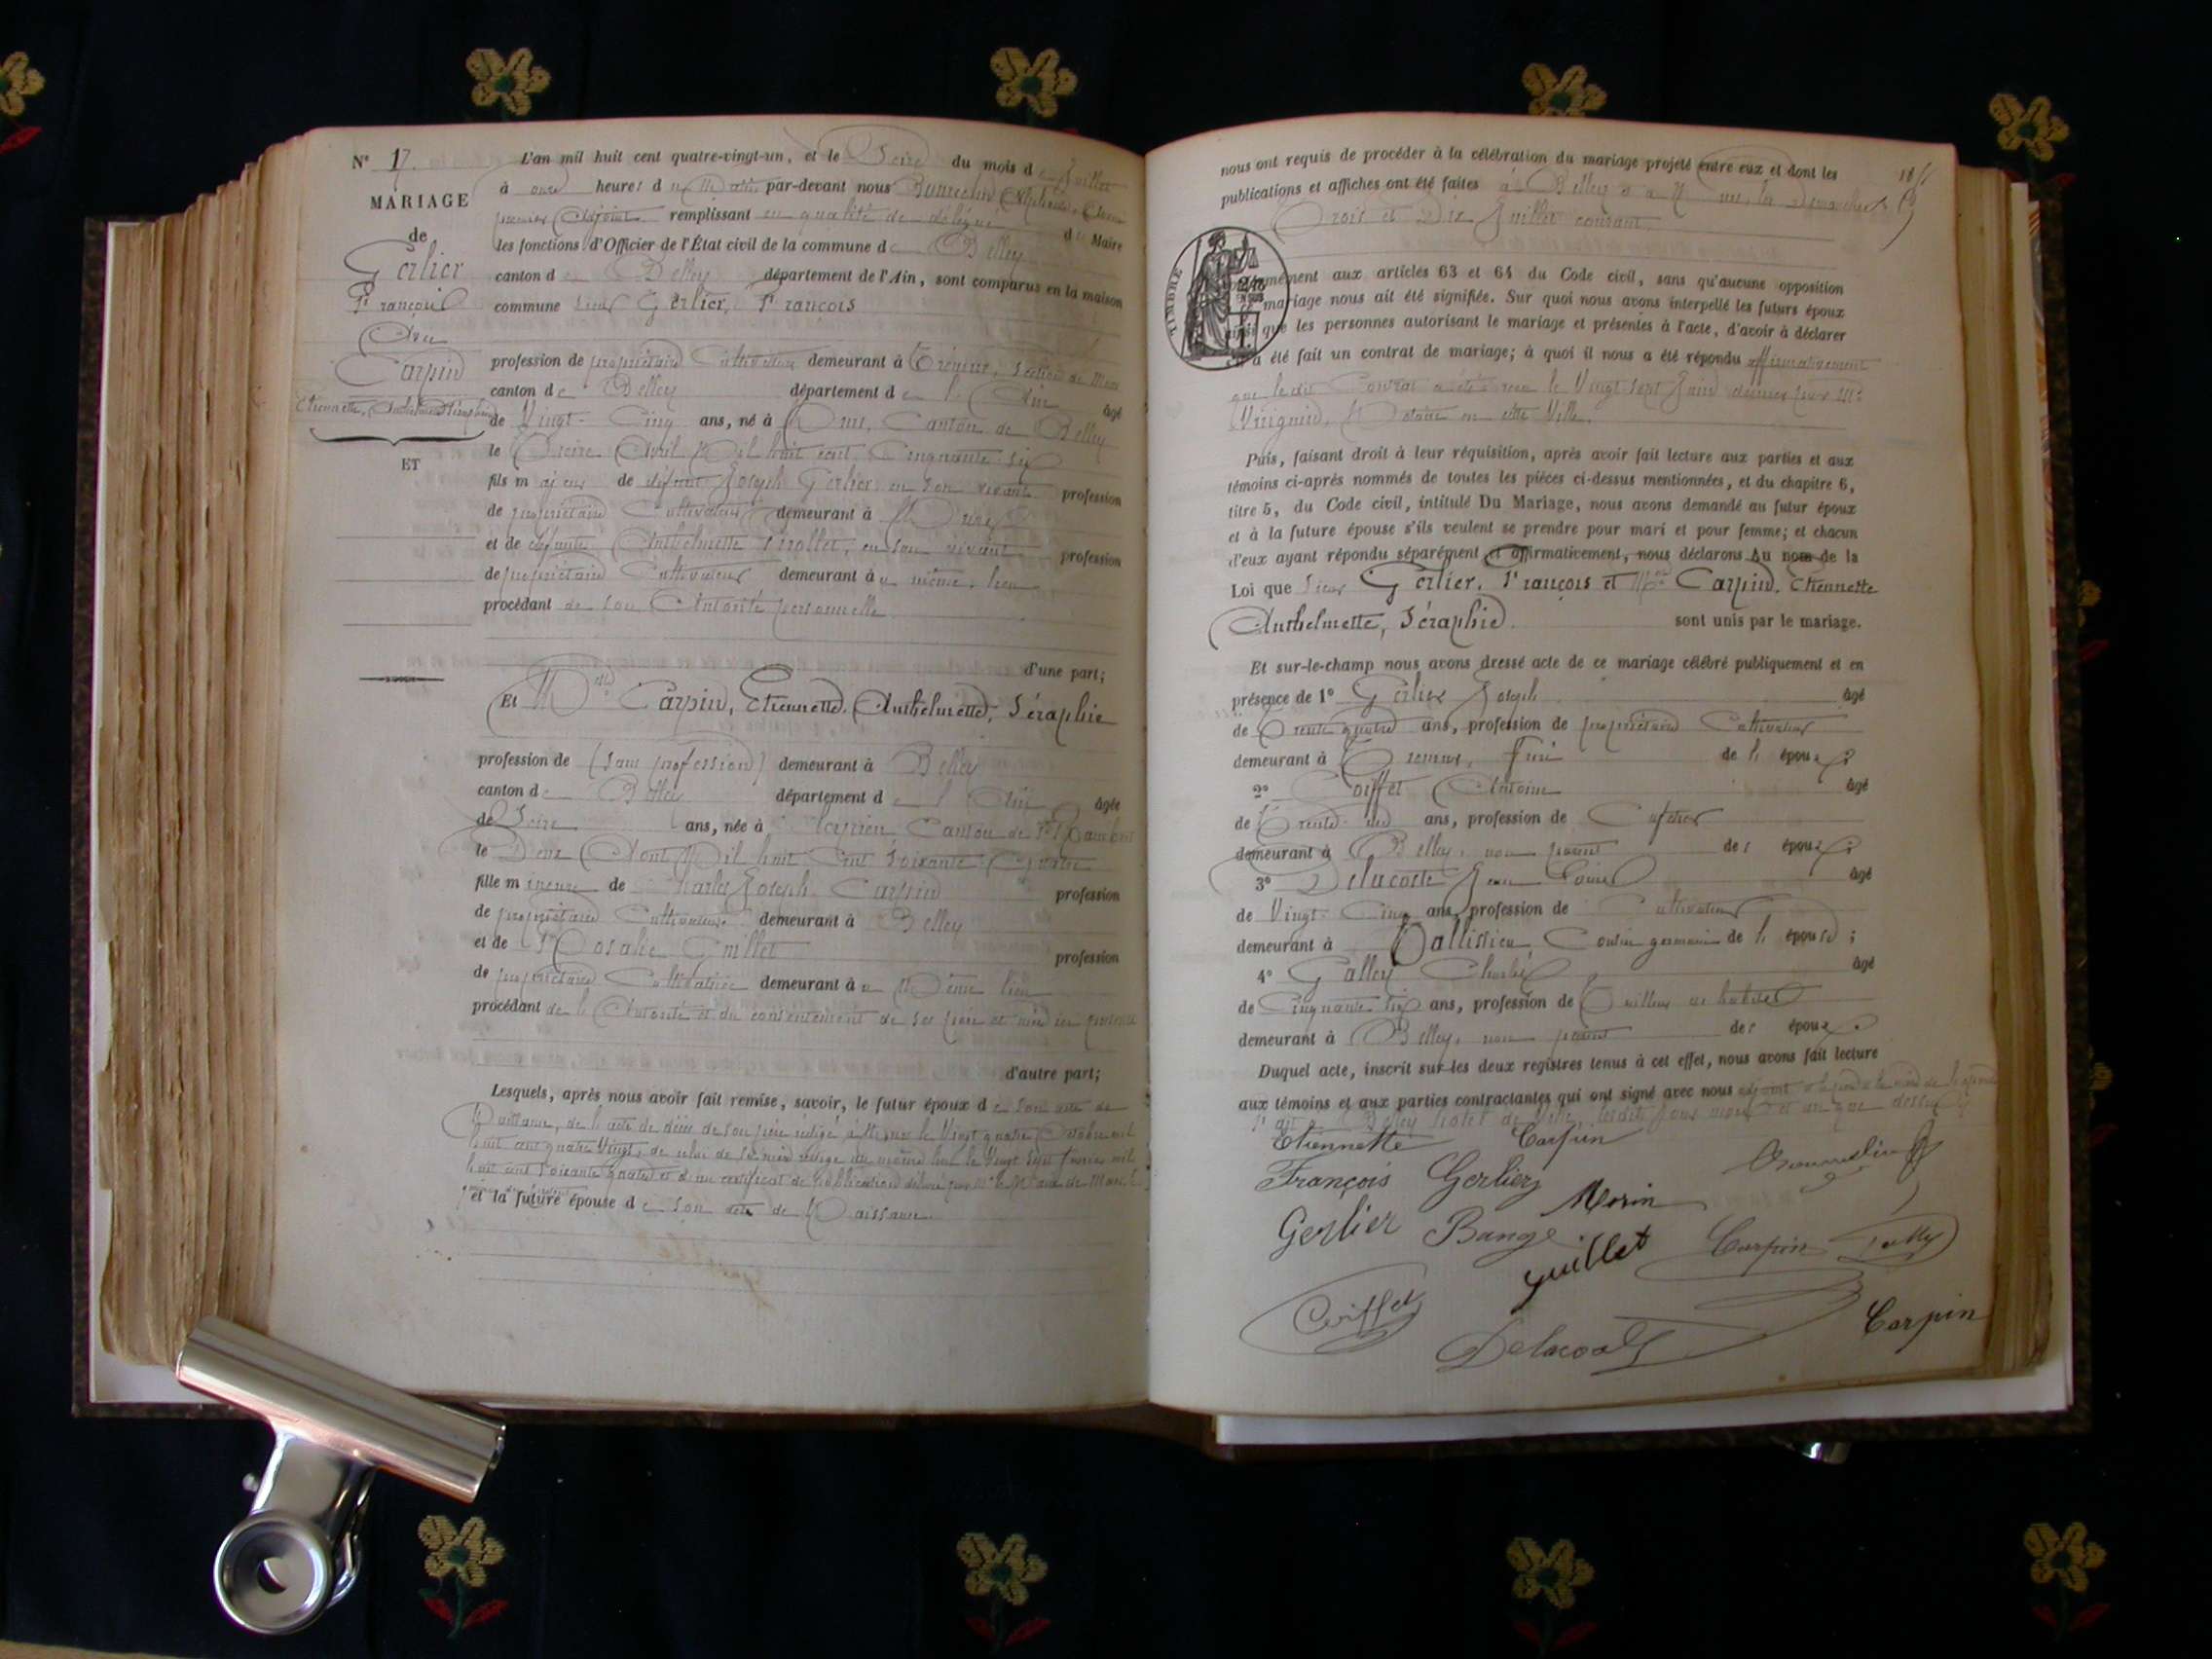 N° 17.
MARIAGE
de
Gerlier
François
Avec
Carpin
Etiennette, Anthelmette Séraphie
ET
L'an mil huit cent quatre-vingt-un, et le Seize du mois de Juillet
à onze heures du Matin par-devant nous
premier Adjoint remplissant en qualité de délégué du Maire
les fonctions d'Officier de l'État civil de la commune de Belley
canton de Belley département de l'Ain, sont comparus en la maison
commune sieur Gerlier, François
profession de propriétaire Cultivateur demeurant à
canton de Belley département de l'Ain âgé
de Vingt-Cinq ans, né à Canton de Belley
le Avril Mil huit cent Cinquante-six
fils majeur de défunt Joseph Gerlier en son vivant profession
de propriétaire Cultivateur demeurant à
et de défunte Anthelmette en son vivant profession
de propriétaire Cultivateur demeurant au même lieu
procédant de son Autorité personnelle
d'une part;
Et Mlle Carpin, Etiennette, Anthelmette, Séraphie
profession de (sans profession) demeurant à Belley
canton de Belley département de l'Ain âgée
de Seize ans, née à Canton de St Rambert
le Deux Août Mil huit Cent Soixante Quatre
fille mineure de Charles Joseph Carpin profession
de propriétaire Cultivateur demeurant à Belley
et de Rosalie Guillet profession
de propriétaire Cultivatrice demeurant au Même lieu
procédant de l'Autorité et du consentement de ses père et mère ici présents
d'autre part;
Lesquels, après nous avoir fait remise, savoir, le futur époux de son acte de
Naissance, de l'acte de décès de son père rédigé à le Vingt quatre Octobre mil
huit cent quatre Vingt, de celui de sa mère rédigé au même lieu le Vingt Sept Février mil
huit cent soixante quatre et d'un certificat de publication délivré par Mr le Maire de
et la future épouse de son acte de Naissance.
nous ont requis de procéder à la célébration du mariage projeté entre eux et dont les
publications et affiches ont été faites à Belley et à les Dimanches
Trois et Dix Juillet courant
conformément aux articles 63 et 64 du Code civil, sans qu'aucune opposition
mariage nous ait été signifiée. Sur quoi nous avons interpellé les futurs époux
ainsi que les personnes autorisant le mariage et présentes à l'acte, d'avoir à déclarer
s'il a été fait un contrat de mariage; à quoi il nous a été répondu affirmativement
que ledit Contrat a été reçu le Vingt-sept Juin dernier par Me
Notaire en cette Ville.
TIMBRE
Puis, faisant droit à leur réquisition, après avoir fait lecture aux parties et aux
témoins ci-après nommés de toutes les pièces ci-dessus mentionnées, et du chapitre 6,
titre 5, du Code civil, intitulé Du Mariage, nous avons demandé au futur époux
et à la future épouse s'ils veulent se prendre pour mari et pour femme; et chacun
d'eux ayant répondu séparément et affirmativement, nous déclarons Au nom de la
Loi que sieur Gerlier, François et Mlle Carpin, Etiennette
Anthelmette, Séraphie sont unis par le mariage.
Et sur-le-champ nous avons dressé acte de ce mariage célébré publiquement et en
présence de 1° Gerlier Joseph âgé
de Trente quatre ans, profession de propriétaire Cultivateur
demeurant à frère de l'époux;
2° Coiffet Antoine âgé
de ans, profession de Cafetier
demeurant à Belley, non parent des époux;
3° Delacoste Jean Louis âgé
de Vingt-Cinq ans, profession de Cultivateur
demeurant à Cousin germain de l'épouse;
4° Gallay Charles âgé
de Cinquante six ans, profession de Tailleur de habits
demeurant à Belley, non parent des époux.
Duquel acte, inscrit sur les deux registres tenus à cet effet, nous avons fait lecture
aux témoins et aux parties contractantes qui ont signé avec nous
Belley hotel de Ville, lesdits jour mois et an que dessus
Etiennette Carpin
François Gerlier
Gerlier Bange Morin
Guillet Carpin
Coiffet
Delacoste Carpin